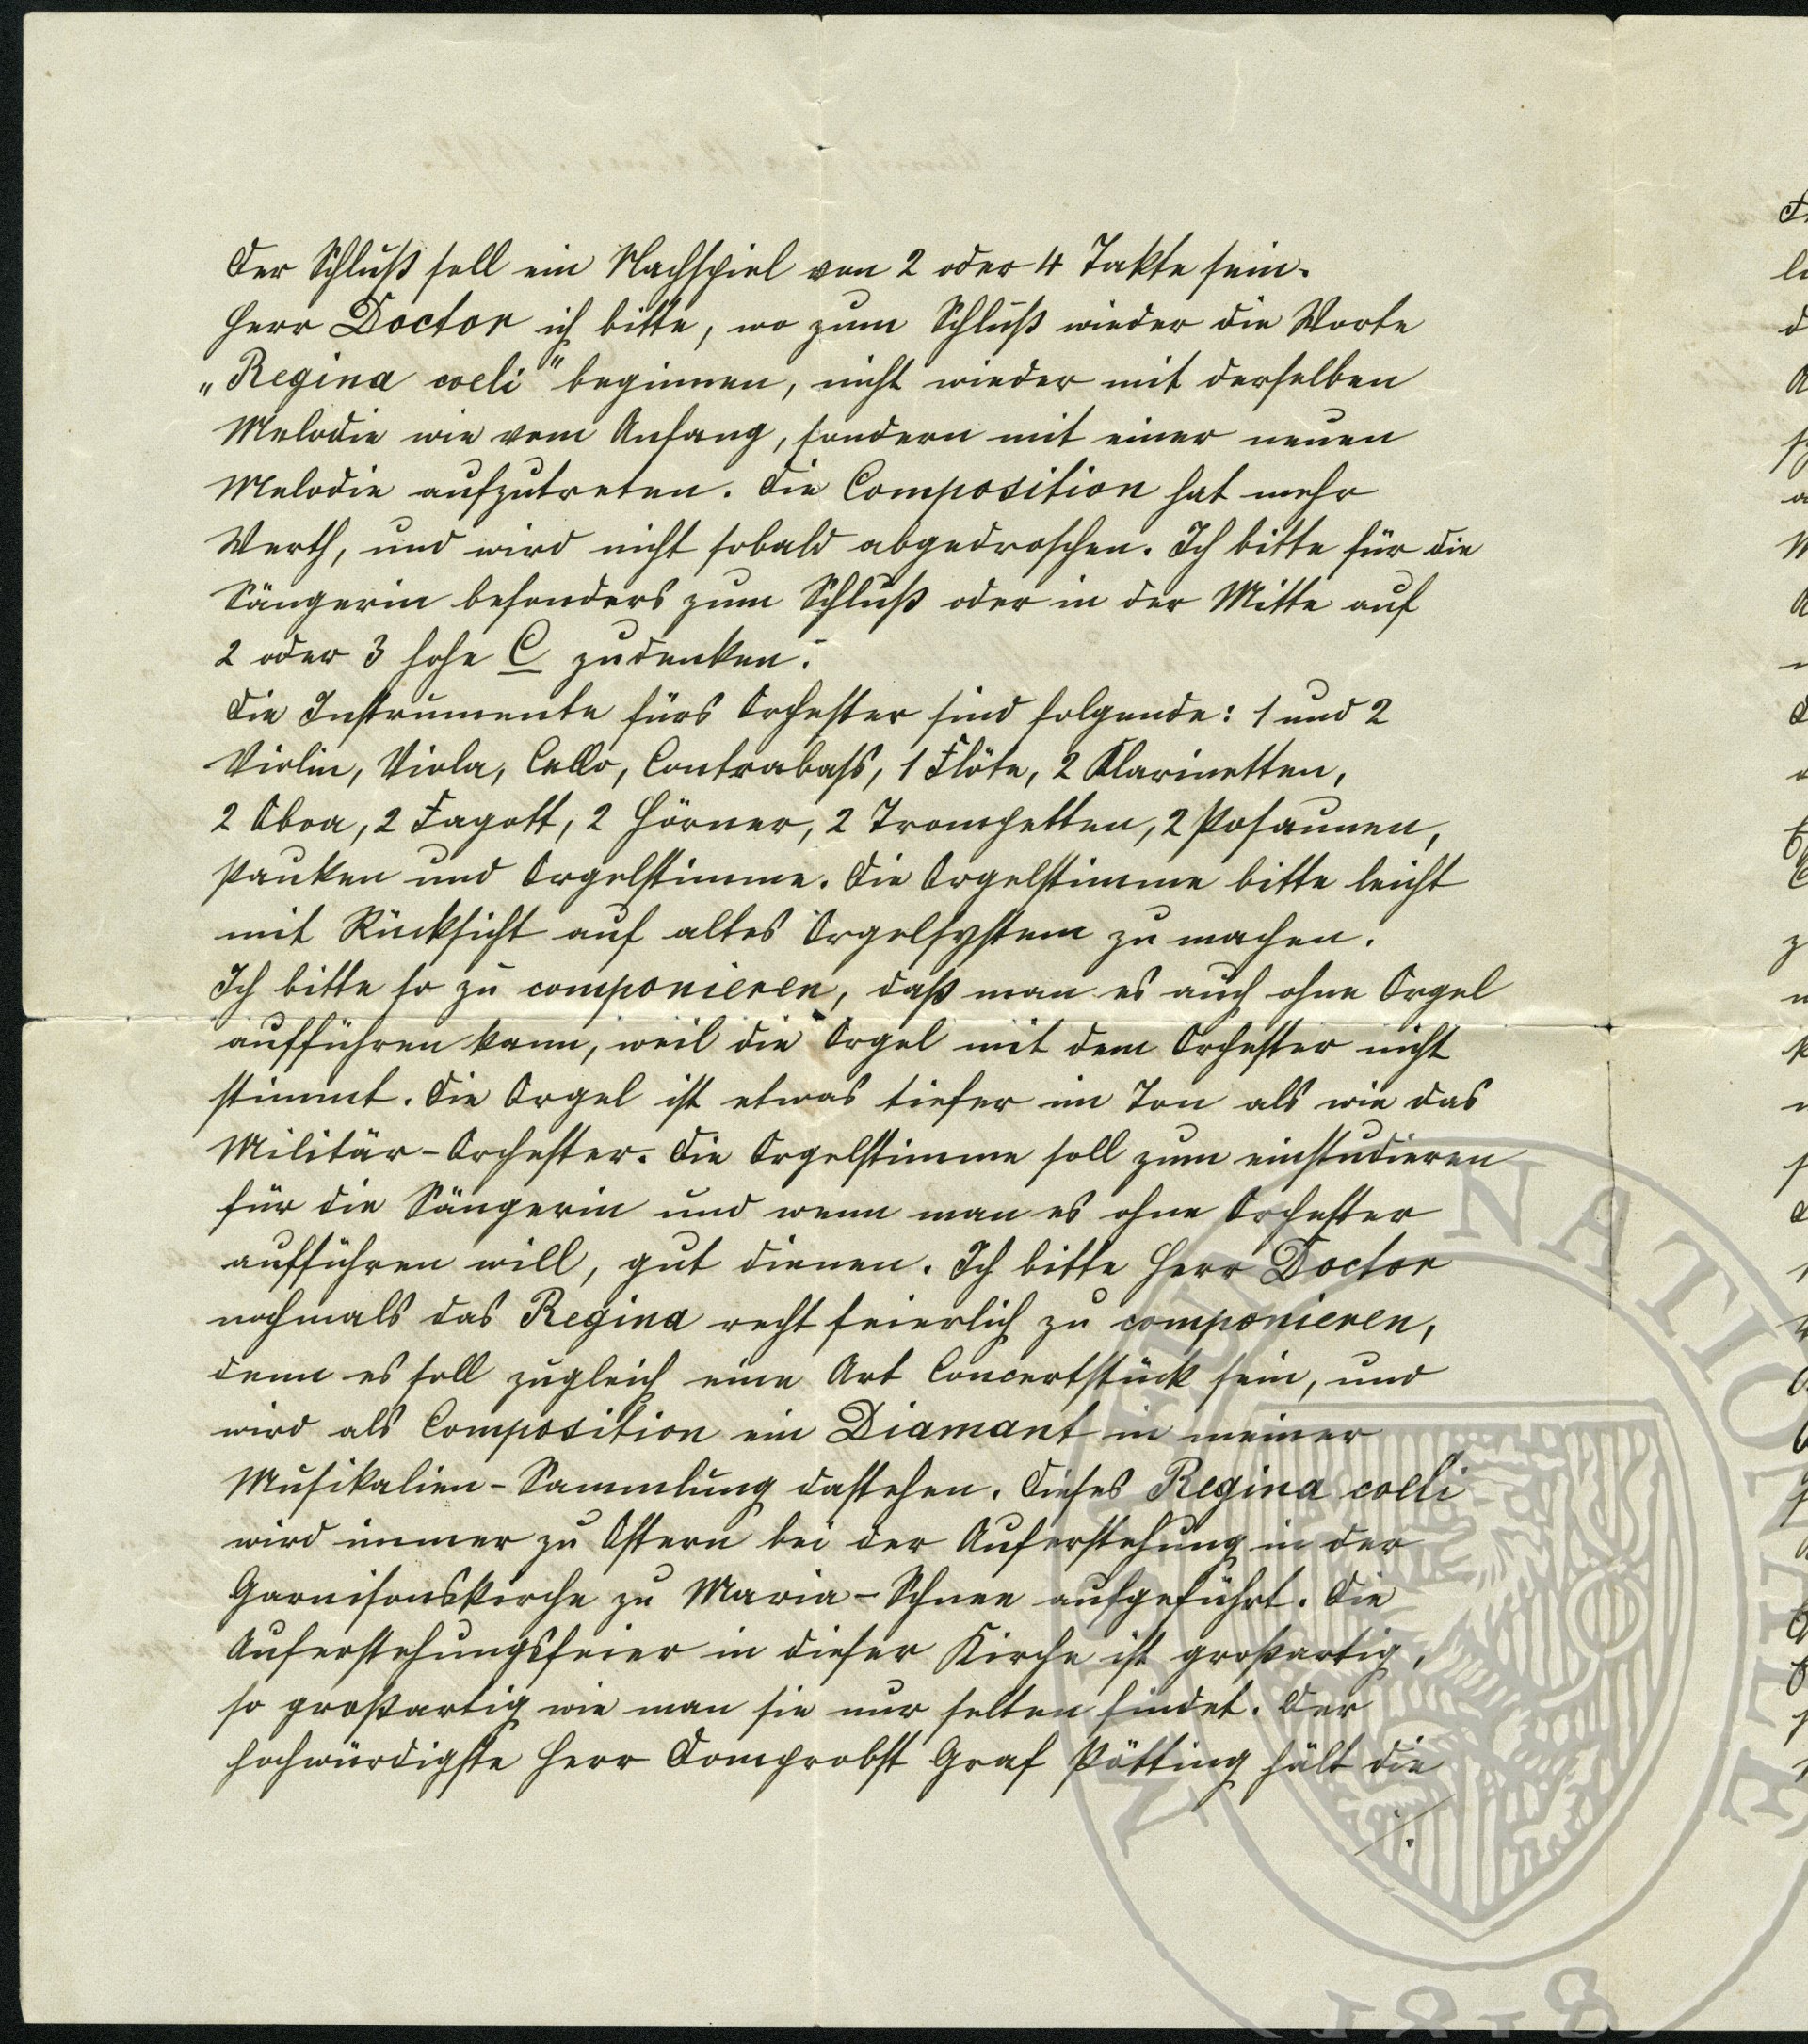 Der Schluß soll ein Nachspiel von 2 oder 4 Takte sein.
Herr Doctor ich bitte, wo zum Schluß wieder die Worte
„Regina coeli" beginnen, nicht wieder mit derselben
Melodie wie vom Anfang, sondern mit einer neuen
Melodie aufzutreten. Die Composition hat mehr
Werth, und wird nicht sobald abgedroschen. Ich bitte für die
Sängerin besonders zum Schluß oder in der Mitte auf
2 oder 3 hohe C zudenken.
Die Instrumente fürs Orchester sind folgende: 1 und 2
Violin, Viola, Cello, Contrabass, 1 Flöte, 2 Klarinetten,
2 Oboa, 2 Fagott, 2 Hörner, 2 Trompetten, 2 Posaunen,
Pauken und Orgelstimme. Die Orgelstimme bitte leicht
mit Rücksicht auf altes Orgelsystem zu machen.
Ich bitte so zu componieren, daß man es auch ohne Orgel
aufführen kann, weil die Orgel mit dem Orchester nicht
stimmt. Die Orgel ist etwas tiefer im Ton als wie das
Militär-Orchester. Die Orgelstimme soll zum einstudieren
für die Sängerin und wenn man es ohne Orchester
aufführen will, gut dienen. Ich bitte Herr Doctor
nochmals das Regina recht feierlich zu componieren,
denn es soll zugleich eine Art Concertstück sein, und
wird als Composition ein Diamant in meiner
Musikalien-Sammlung dastehen. Dieses Regina coeli
wird immer zu Ostern bei der Auferstehung in der
Garnisonskirche zu Maria-Schnee aufgeführt. Die
Auferstehungsfeier in dieser Kirche ist großartig,
so großartig wie man sie nur selten findet. Der
hochwürdigste Herr Domprobst Graf Pötting hält die
./.
1818